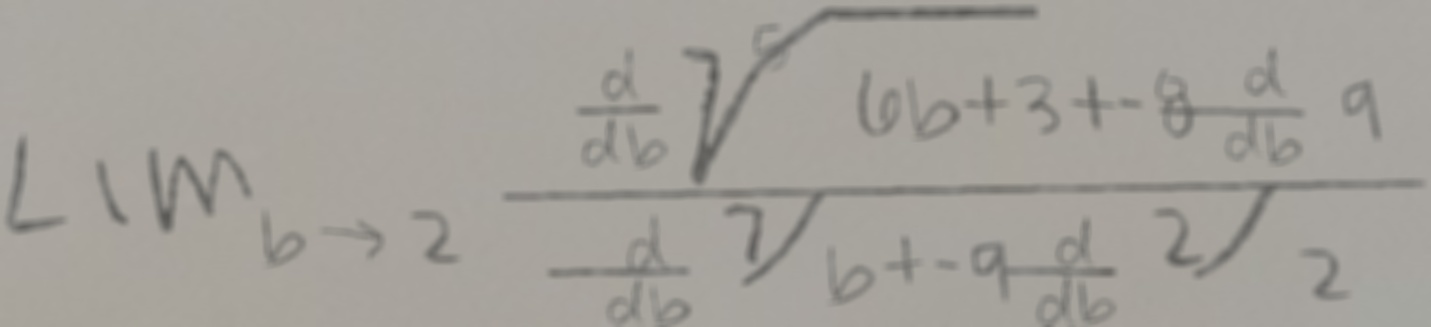 Lim_{b \to 2} \frac{\frac{d}{db} \sqrt[5]{6b+3+-8\frac{d}{db} 9}}{\frac{d}{db} \sqrt[7]{b+-9\frac{d}{db} \sqrt[2]{2}}}